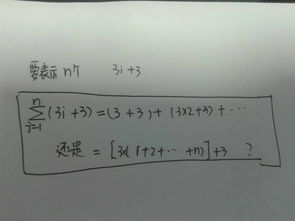 要表示n个 3i+3
n∑i=1 (3i+3) = (3+3) + (3×2+3) + ⋯
还是 = [3×(1+2+⋯+n)]+3 ?